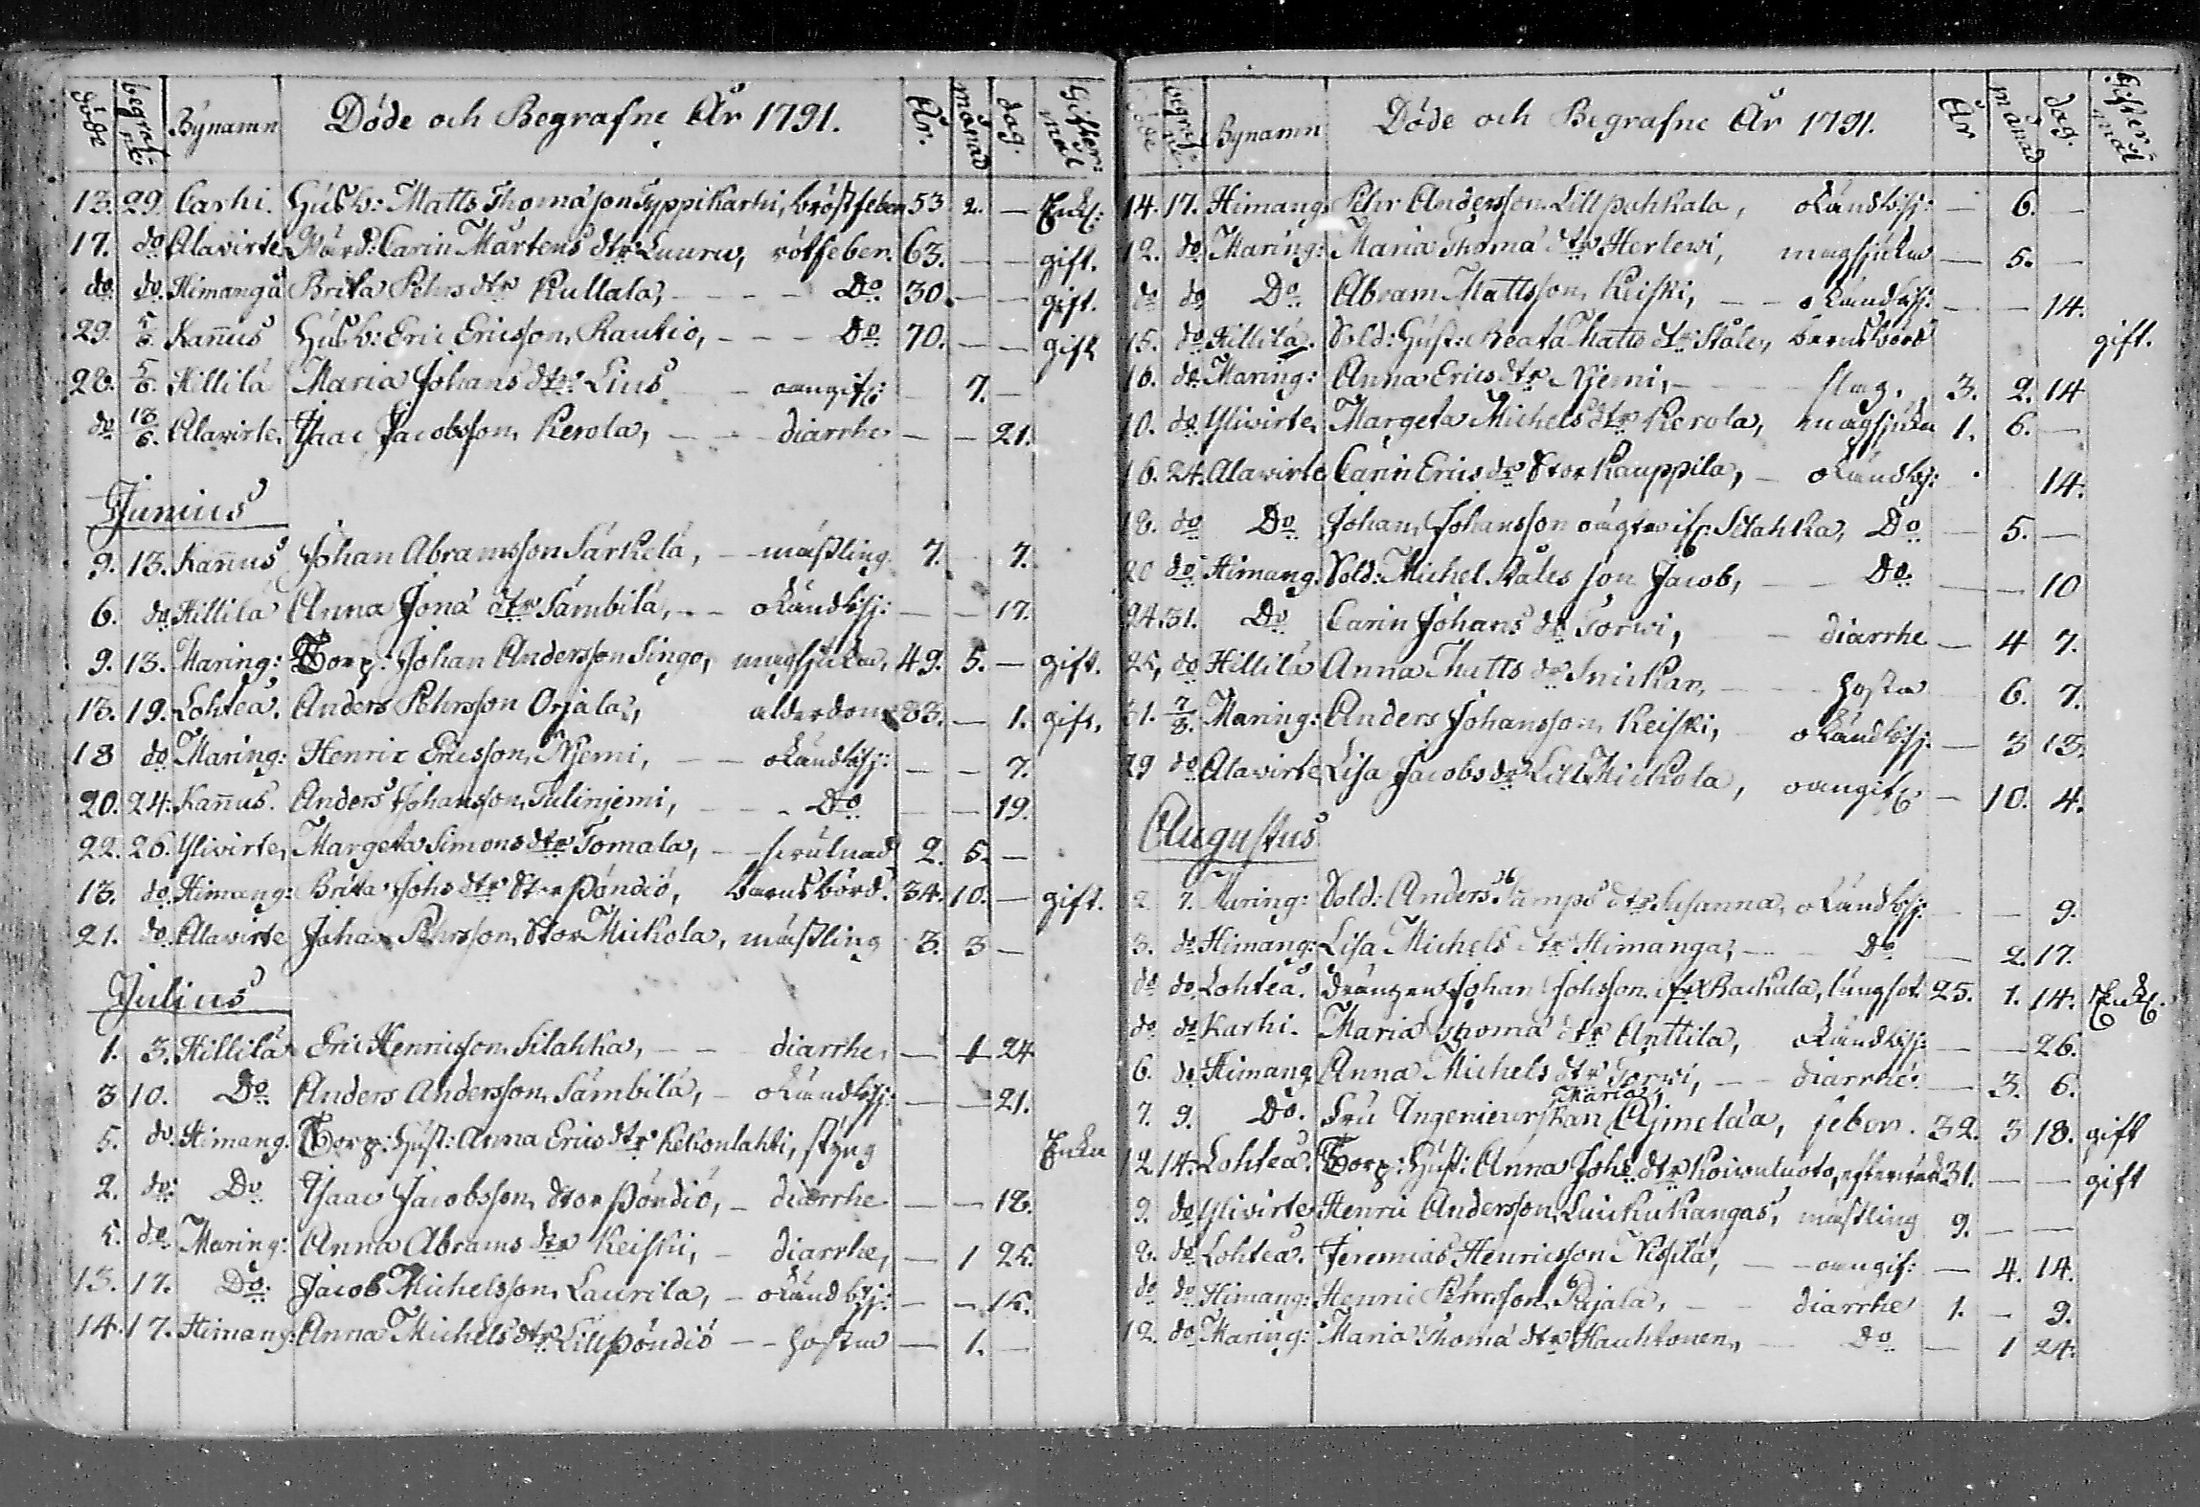 döde begrafne. Bynamn Döde och Begrafne År 1791. År. månad dag. Giftermål
13. 29. Carhi. Husb: Matts Thomasson Typpikarhi, bröstfeber 53 2. — Enkl:
17. do Alavirte Wärd: Carin Mårtens dtr Luuru, rötfeber. 63. — — gift.
do. do. Himanga Brita Pehrs dtr Kullala, - - - - Do 30. — — gift.
29. 5/6. Kan̄us Husb: Eric Ericsson Rautio, - - - Do 70. — — gift
28. 5/6. Hillilä Maria Johans dtr Lius - - oangif: 7. —
do 13/6. Alavirte. Isaac Jacobsson Kerola, - - - diarrhe — — 21.
Junius
9. 13. Kan̄us Johan Abramsson Särkelä, - - mässling 7. 7.
6. do Hillilä Anna Jona dtr Sämbilä, - - okändbsj: — — 17.
9. 13. Maring: Torp: Johan Andersson Singo, magsjuka, 49. 5. — gift.
18. 19. Lohteå. Anders Pehrsson Orjala, alderdom 83. — 1. gift.
18 do Maring: Henric Ericsson Njemi, - - okändbsj: — — 7.
20. 24. Kan̄us. Anders Johansson Tulinjemi, - - - Do — — 19.
22. 26. Ylivirte, Margeta Simons dtr Tomala, - - 2. 5. —
13. do. Himang: Brita Johs dtr Stor Pöndiö, barnsbörd. 34. 10. — gift.
21. do. Alavirte Johan Pehrsson Stor Mickola, mässling 3. 3 —
Julius
1. 3. Hillilä Eric Henricsson Silahka, - - diarrhe, — 1 24
3 10. Do Anders Andersson Sämbilä, - okändbsj: — — 21.
5. do. Himang. Torp: Hust: Anna Erics dtr Kekonlahti, styng Enka
2. do: Do Isaac Jacobsson Stor Pöndiö, - diarrhe — — 18.
5. do. Maring: Anna Abrams dtr Keiski, - diarrhe, — 1 25.
13. 17. Do: Jacob Michelsson Laurila, - okändbsj: — — 15.
14. 17. Himang: Anna Michels dtr Lill Pöndiö - - hosta — 1. —
begrafne. Bynamn Döde och Begrafne År 1791. År månad dag. Giftermål
14. 17. Himang. Pehr Andersson Lillpahkala, okändbsj: — 6. —
12. do Maring: Maria Thoma dtr Herlewi, magsjuka — 5. —
do do Do Abram Mattsson Keiski, - - okändbsj: — — 14.
15. do Hillilä. Sold: Hust: Beata Matts dtr Ståle, barnsbörd gift.
16. do Maring: Anna Erics dtr Njemi, - - - slag. 3. 2. 14
10. do Ylivirte, Margeta Michels dtr Kerola, magsjuka 1. 6. —
16. 24. Alavirte Carin Erics dtr Stor Kauppila, - okändbsj: 14.
18. do Do Johan Johansson Silahka, Do — 5. —
20 do Himang. Sold: Michel Ståles son Jacob, - - Do — — 10
24. 31. Do Carin Johans dtr Torwi, - - diarrhe — 4 7.
25, do Hillilä Anna Matts dtr Snickar, - - - hosta 6. 7.
31. 7/8. Maring: Anders Johansson Keiski, - okändbsj: — 3 13.
29 do Alavirte Lisa Jacobs dtr Lill Mickola, oangif — 10. 4.
Augustus
2 7. Maring: Sold: Anders Kamps dtr Susanna, okändbsj: — — 9.
3. do Himang: Lisa Michels dtr Himanga, - - Do — 2. 17.
do do Lohteå. drängen Johan Johsson Backala, lungsot. 25. 1. 14. Enkl.
do do Karhi. Maria Thoma dtr Anttila, okändbsj: — — 26.
6. do Himang Anna Michels dtr Torwi, - - diarrhe: — 3. 6.
7. 9. Do. Fru Ingenieurskan Maria Ajmeláa, feber. 32. 3 18. gift
12. 14. Lohteå. Torp: Hust: Anna Johs dtr Koivuluoto, 31. — — gift
9. do Ylivirte Henric Andersson Luukukangas, mässling 9. — —
8. do Lohteå. Jeremias Henricsson Nissilä, - - oangif: — 4. 14.
do do Himang: Henric Pehrsson Pajala, - - diarrhe 1. — 9.
12. do Maring: Maria Thoma dtr Kauhtonen, - Do — 1 24.